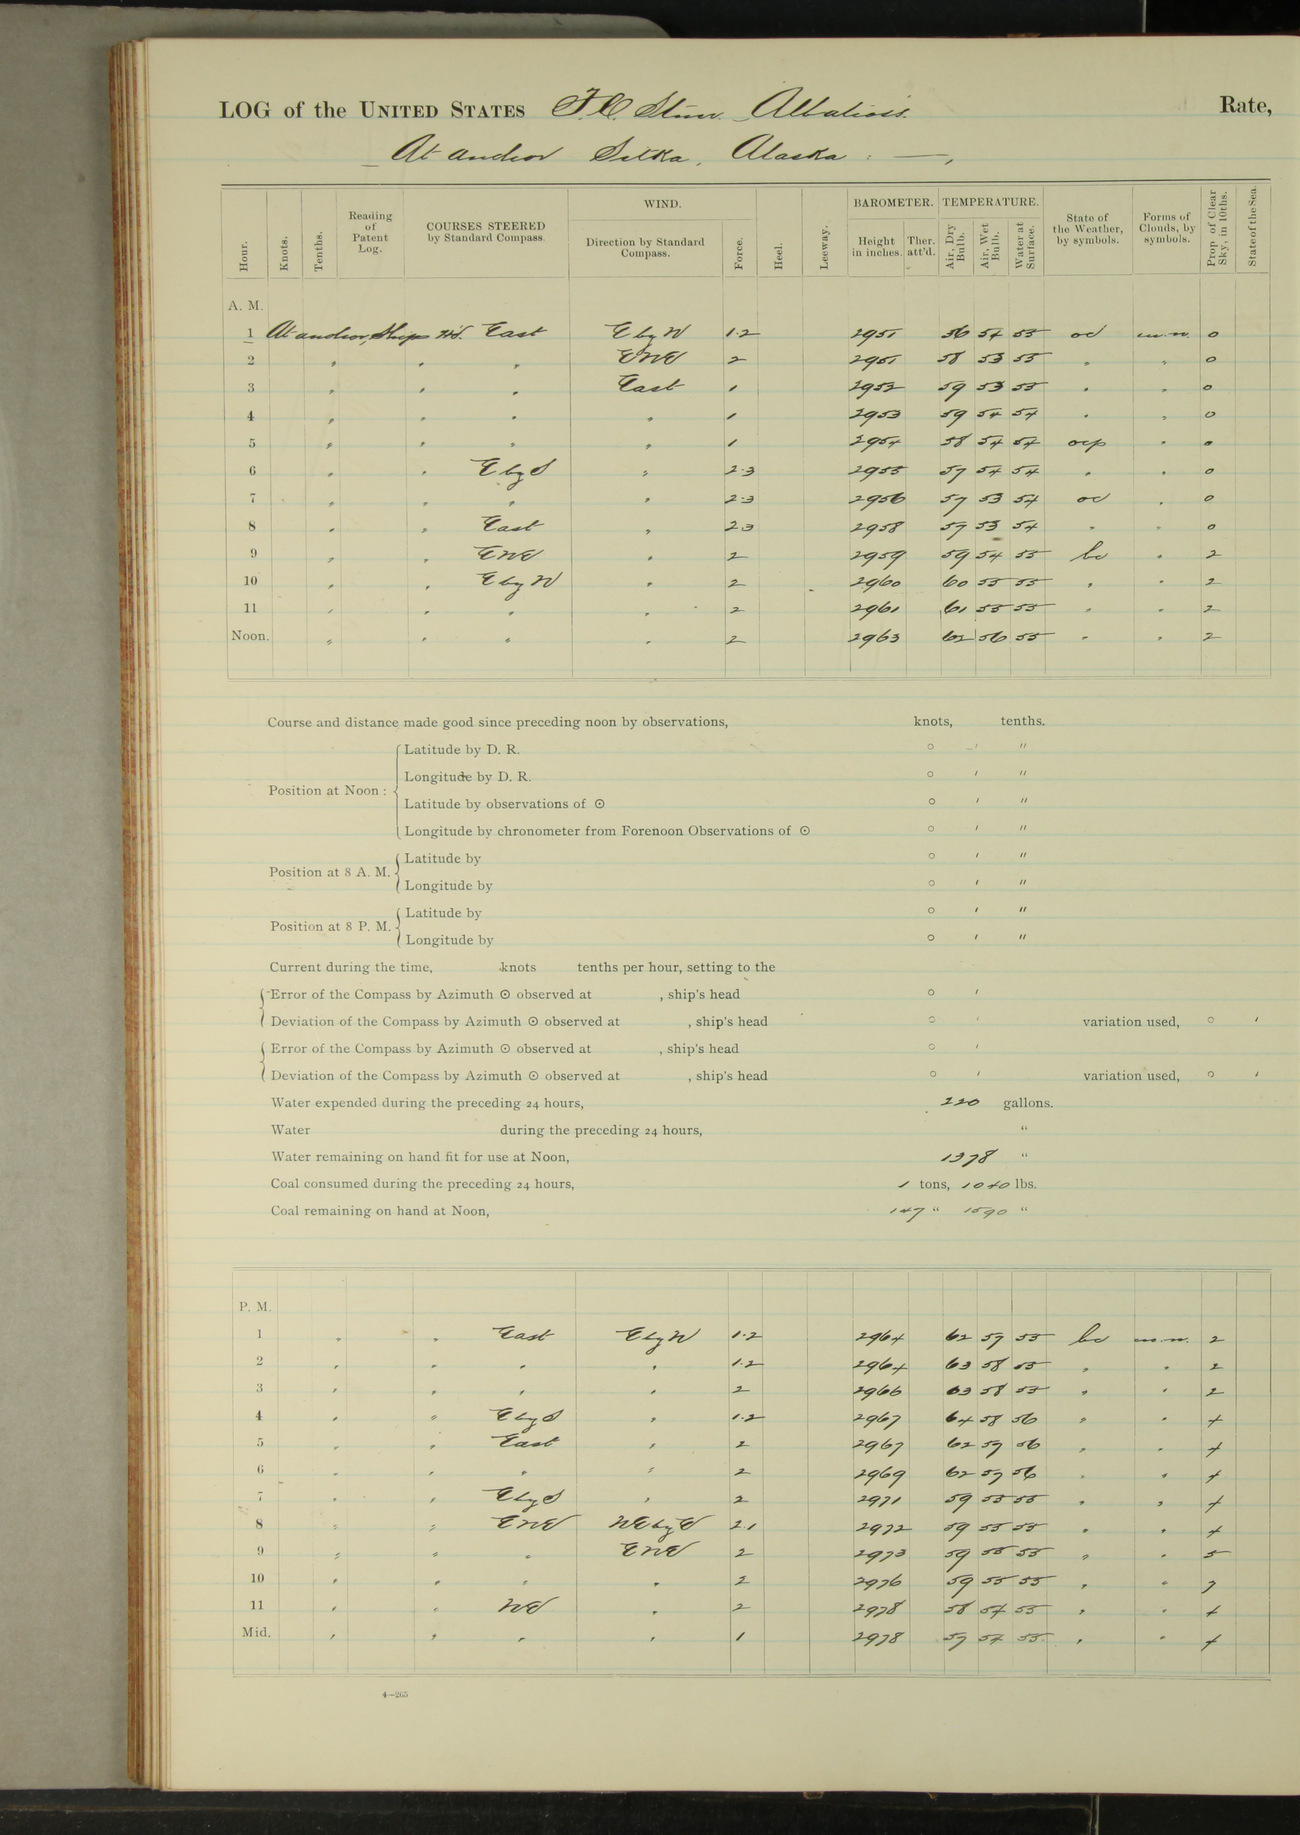 LOG of the UNITED STATES F.C. Stmr. Albatross. Rate,
At anchor Sitka, Alaska : —,
Hour. Knots. Tenths. Reading of Patent Log. COURSES STEERED by Standard Compass. WIND. Direction by Standard Compass. Force. Heel. Leeway. BAROMETER. Height in inches. Ther. att'd. TEMPERATURE. Air, Dry Bulb. Air, Wet Bulb. Water at Surface. State of the Weather, by symbols. Forms of Clouds, by symbols. Prop. of Clear Sky, in 10ths. State of the Sea.
A. M.
1 At anchor, Ships Hd. East E by N 1.2 2951 56 54 55 oc cu.-n. 0
2 " " " ENE 2 2951 58 53 55 " " 0
3 " " " East 1 2952 59 53 55 " " 0
4 " " " " 1 2953 59 54 54 " " 0
5 " " " " 1 2954 58 54 54 ocp " 0
6 " " E by S " 2.3 2955 57 54 54 " " 0
7 " " " " 2.3 2956 57 53 54 oc " 0
8 " " East " 2.3 2958 57 53 54 " " 0
9 " " ENE " 2 2959 59 54 55 bc " 2
10 " " E by N " 2 2960 60 55 55 " " 2
11 " " " " 2 2961 61 55 55 " " 2
Noon. " " " " 2 2963 62 56 55 " " 2
Course and distance made good since preceding noon by observations, knots, tenths.
Position at Noon :
Latitude by D. R. ° ′ ″
Longitude by D. R. ° ′ ″
Latitude by observations of ☉ ° ′ ″
Longitude by chronometer from Forenoon Observations of ☉ ° ′ ″
Position at 8 A. M.
Latitude by ° ′ ″
Longitude by ° ′ ″
Position at 8 P. M.
Latitude by ° ′ ″
Longitude by ° ′ ″
Current during the time, knots tenths per hour, setting to the
Error of the Compass by Azimuth ☉ observed at , ship's head ° ′
Deviation of the Compass by Azimuth ☉ observed at , ship's head ° ′ variation used, ° ′
Error of the Compass by Azimuth ☉ observed at , ship's head ° ′
Deviation of the Compass by Azimuth ☉ observed at , ship's head ° ′ variation used, ° ′
Water expended during the preceding 24 hours, 220 gallons.
Water during the preceding 24 hours, "
Water remaining on hand fit for use at Noon, 1378 "
Coal consumed during the preceding 24 hours, 1 tons, 1040 lbs.
Coal remaining on hand at Noon, 147 " 1590 "
P. M.
1 " " East E by N 1.2 2964 62 57 55 bc cu.-n. 2
2 " " " " 1.2 2964 63 58 55 " " 2
3 " " " " 2 2966 63 58 55 " " 2
4 " " E by S " 1.2 2967 64 58 56 " " 4
5 " " East " 2 2967 62 57 56 " " 4
6 " " " " 2 2969 62 57 56 " " 4
7 " " E by S " 2 2971 59 55 55 " " 4
8 " " ENE NE by E 2.1 2972 59 55 55 " " 4
9 " " " ENE 2 2973 59 55 55 " " 5
10 " " " " 2 2976 59 55 55 " " 7
11 " " NE " 2 2978 58 54 55 " " 4
Mid. " " " " 1 2978 57 54 55 " " 4
4—265